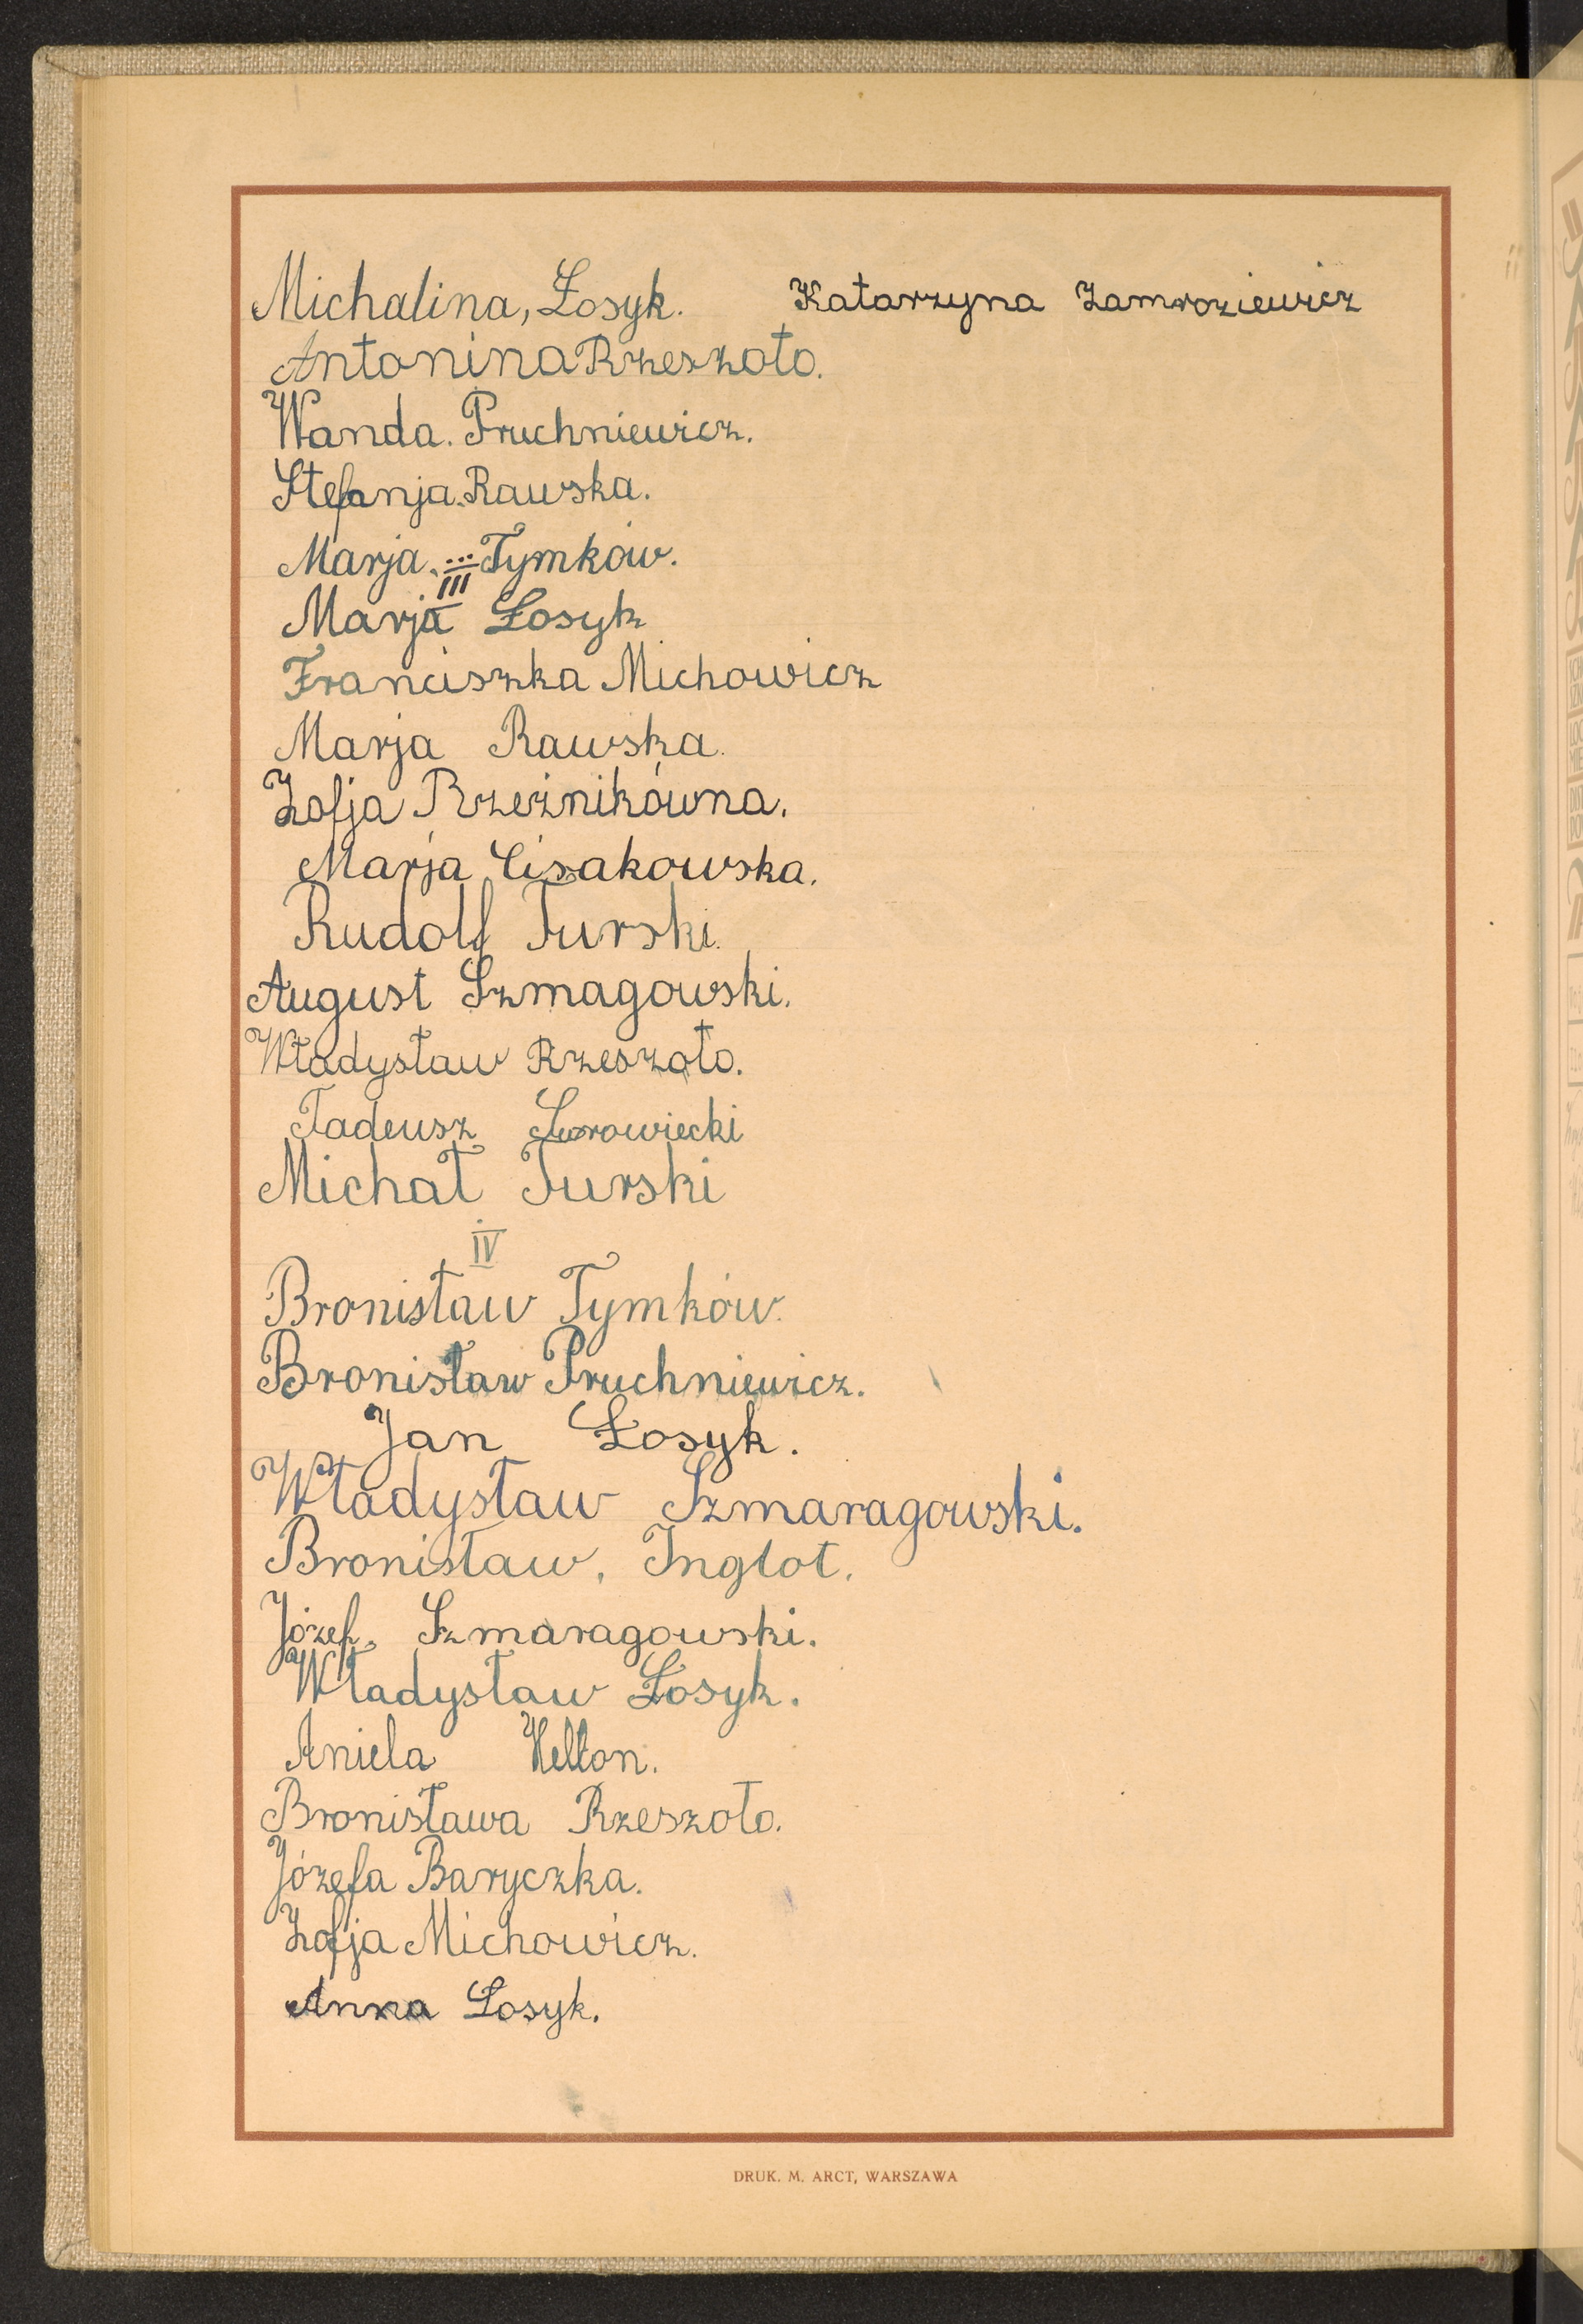 Michalina, Łosyk. Katarzyna Zamroziewicz
Antonina Rzeszoto.
Wanda. Pruchniewicz.
Stefanja. Rawska.
Marja. Tymków.
III
Marja Łosyk
Franciszka Michowicz
Marja Rawska.
Zofja Rzeźnikówna.
Marja Cisakowska.
Rudolf Turski.
August Szmagowski.
Władysław Rzeszoto.
Tadeusz
Michał Turski
IV
Bronisław Tymków.
Bronisław Pruchniewicz.
Jan Łosyk.
Władysław Szmaragowski.
Bronisław, Inglot.
Józef. Szmaragowski.
Władysław Łosyk.
Aniela
Bronisława Rzeszoto.
Józefa Baryczka.
Zofja Michowicz.
Anna Łosyk.
DRUK. M. ARCT, WARSZAWA